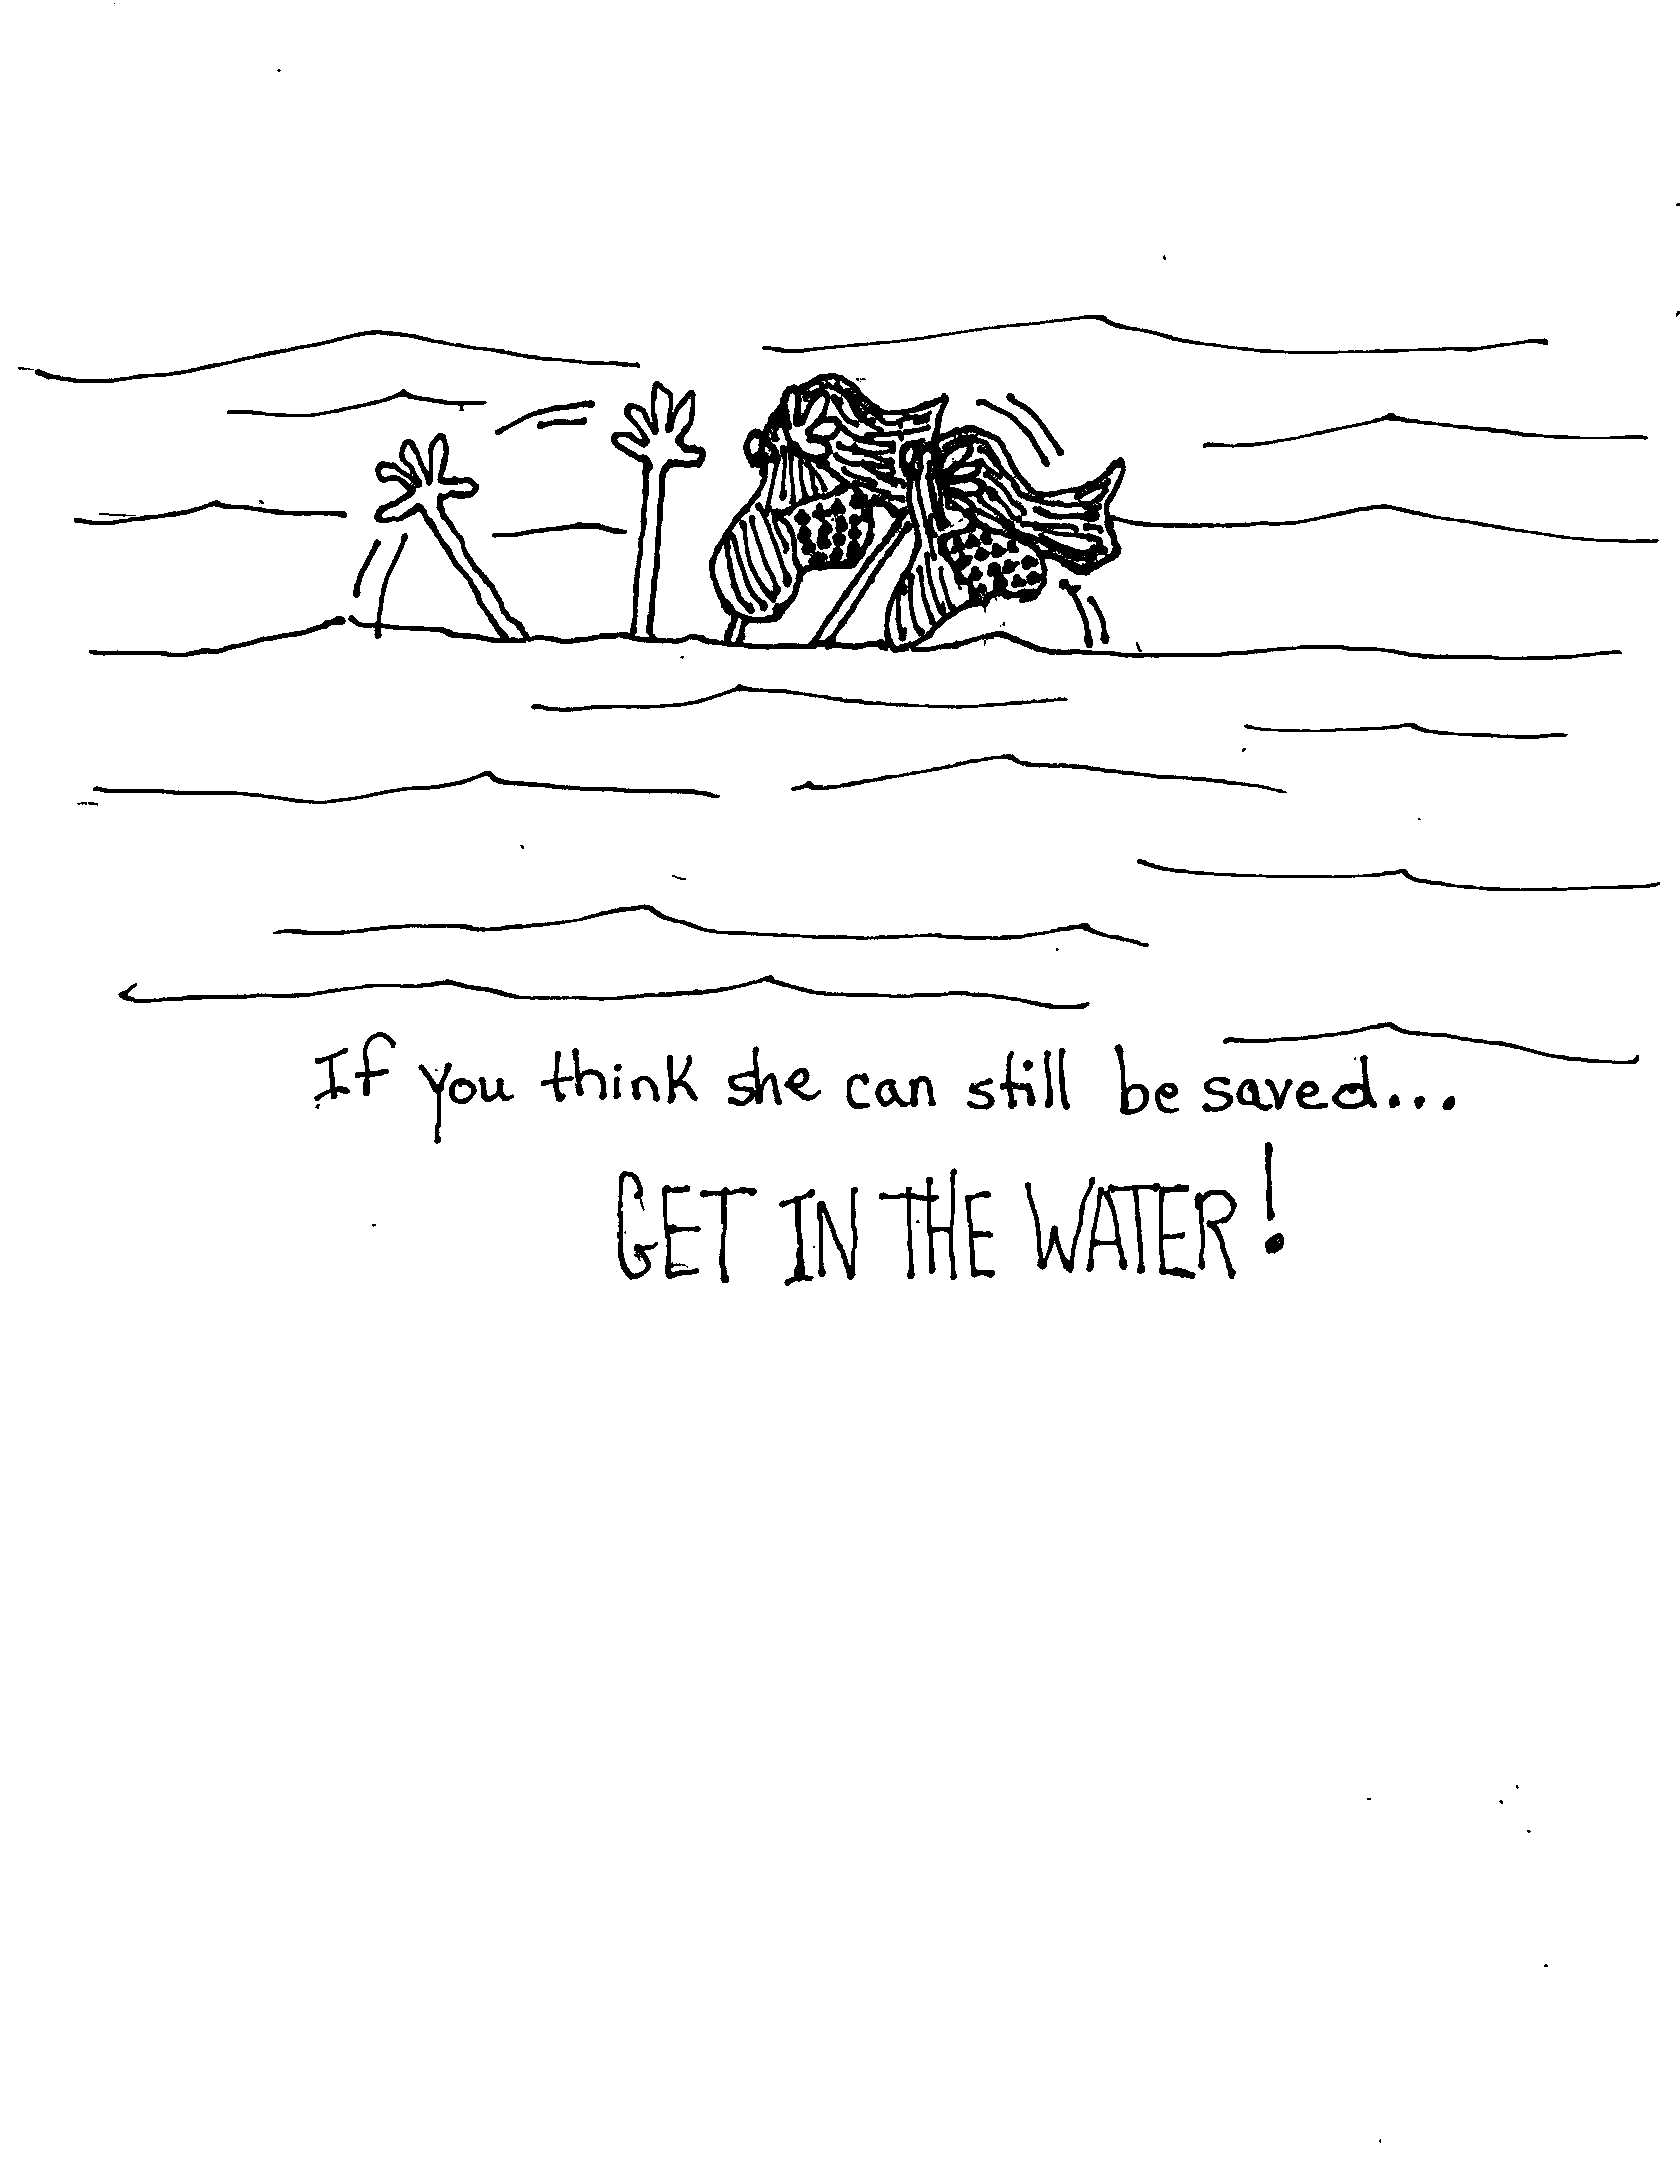 If you think she can still be saved...
GET IN THE WATER!